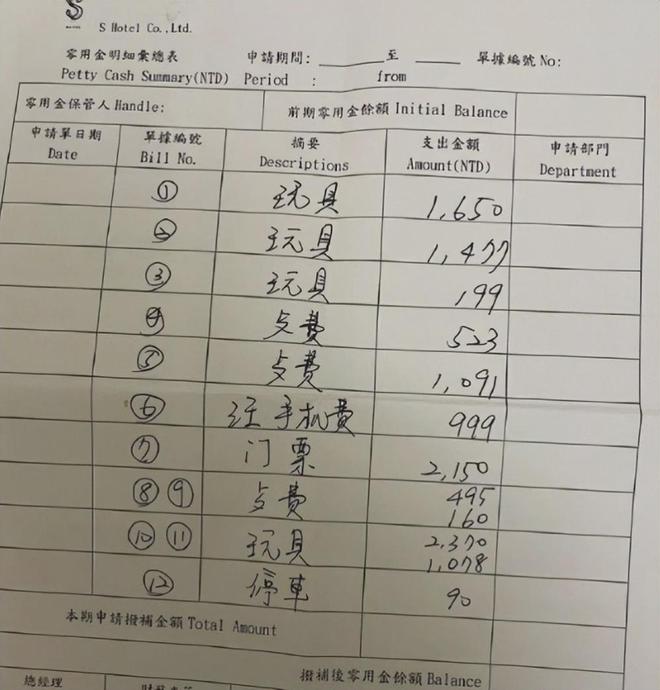 S
S Hotel Co.,Ltd.
零用金明細彙總表 申請期間: ______ 至 ______ 單據編號 No:
Petty Cash Summary(NTD) Period : from
零用金保管人 Handle: 前期零用金餘額 Initial Balance
申請單日期 單據編號 摘要 支出金額 申請部門
Date Bill No. Descriptions Amount(NTD) Department
① 玩具 1,650
② 玩具 1,477
③ 玩具 199
④ 费 523
⑤ 费 1,091
⑥ 手机費 999
⑦ 门票 2,150
⑧ ⑨ 费 495
160
⑩ ⑪ 玩具 2,370
1,078
⑫ 停車 90
本期申請撥補金額 Total Amount
撥補後零用金餘額 Balance
總經理